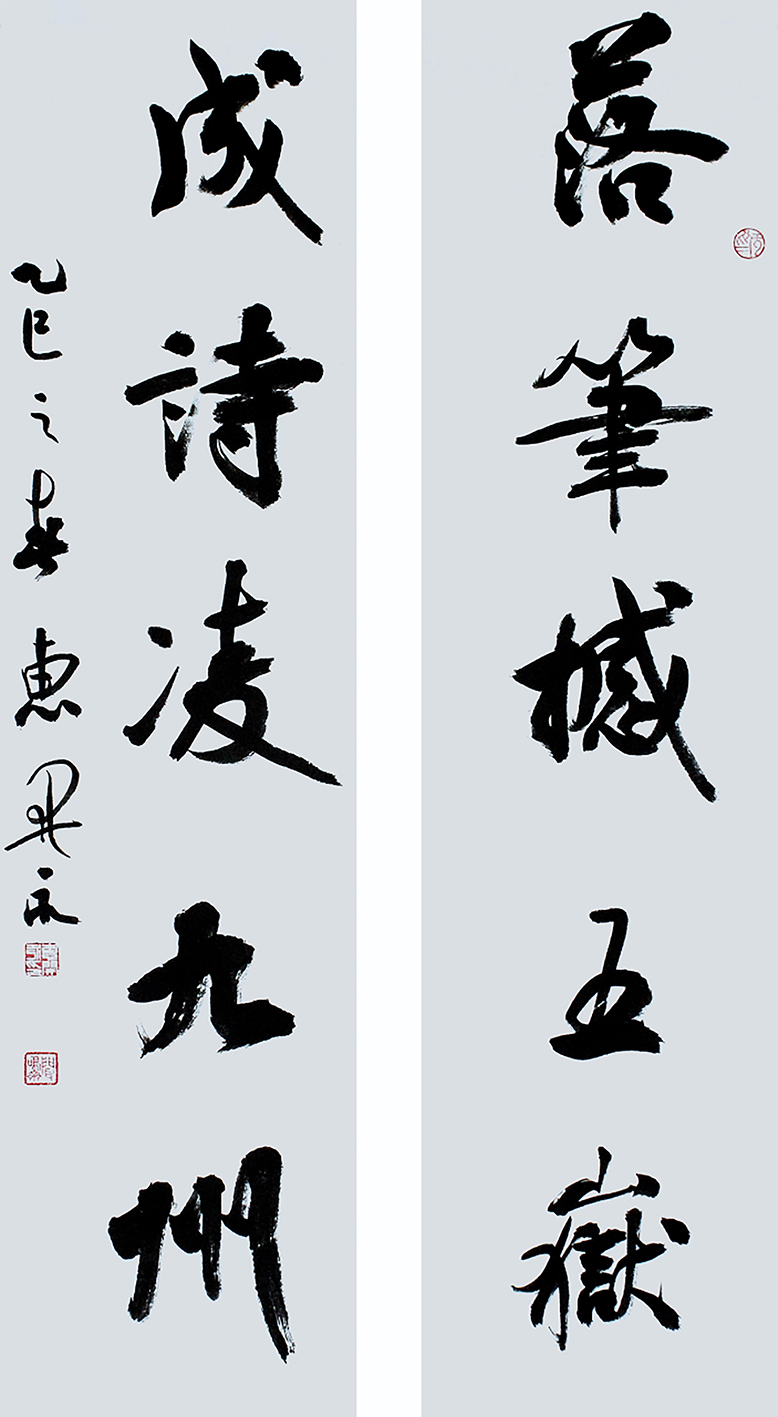 落筆撼五嶽
成詩凌九州
乙巳之春惠